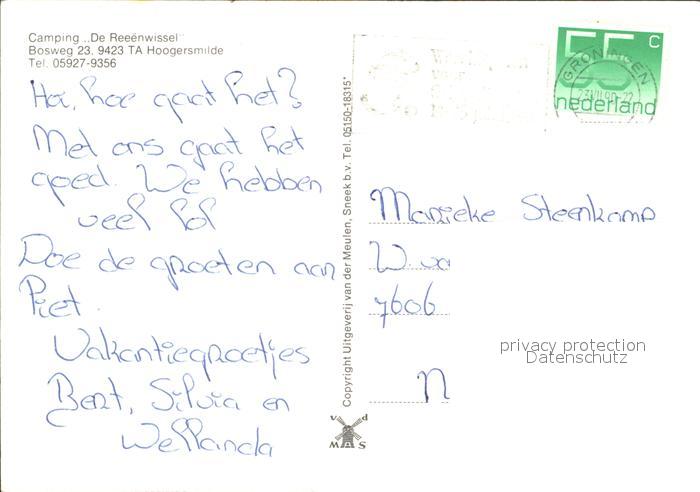 Camping „De Reeënwissel"
Bosweg 23, 9423 TA Hoogersmilde
Tel. 05927-9356
Hoi, hoe gaat het?
Met ons gaat het
goed. We hebben
veel lol
Doe de groeten aan
Piet.
Vakantiegroetjes
Bert, Silvia en
Wellanda
Copyright Uitgeverij van der Meulen, Sneek b.v. Tel. 05150-18315*
v d
M A S
55 c
nederland
GRONINGEN
Marieke Steenkamp
W.
7606
N
privacy protection
Datenschutz